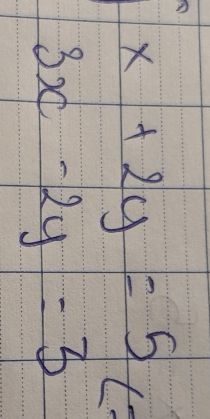 x + 2y = 5
3x - 2y = 3